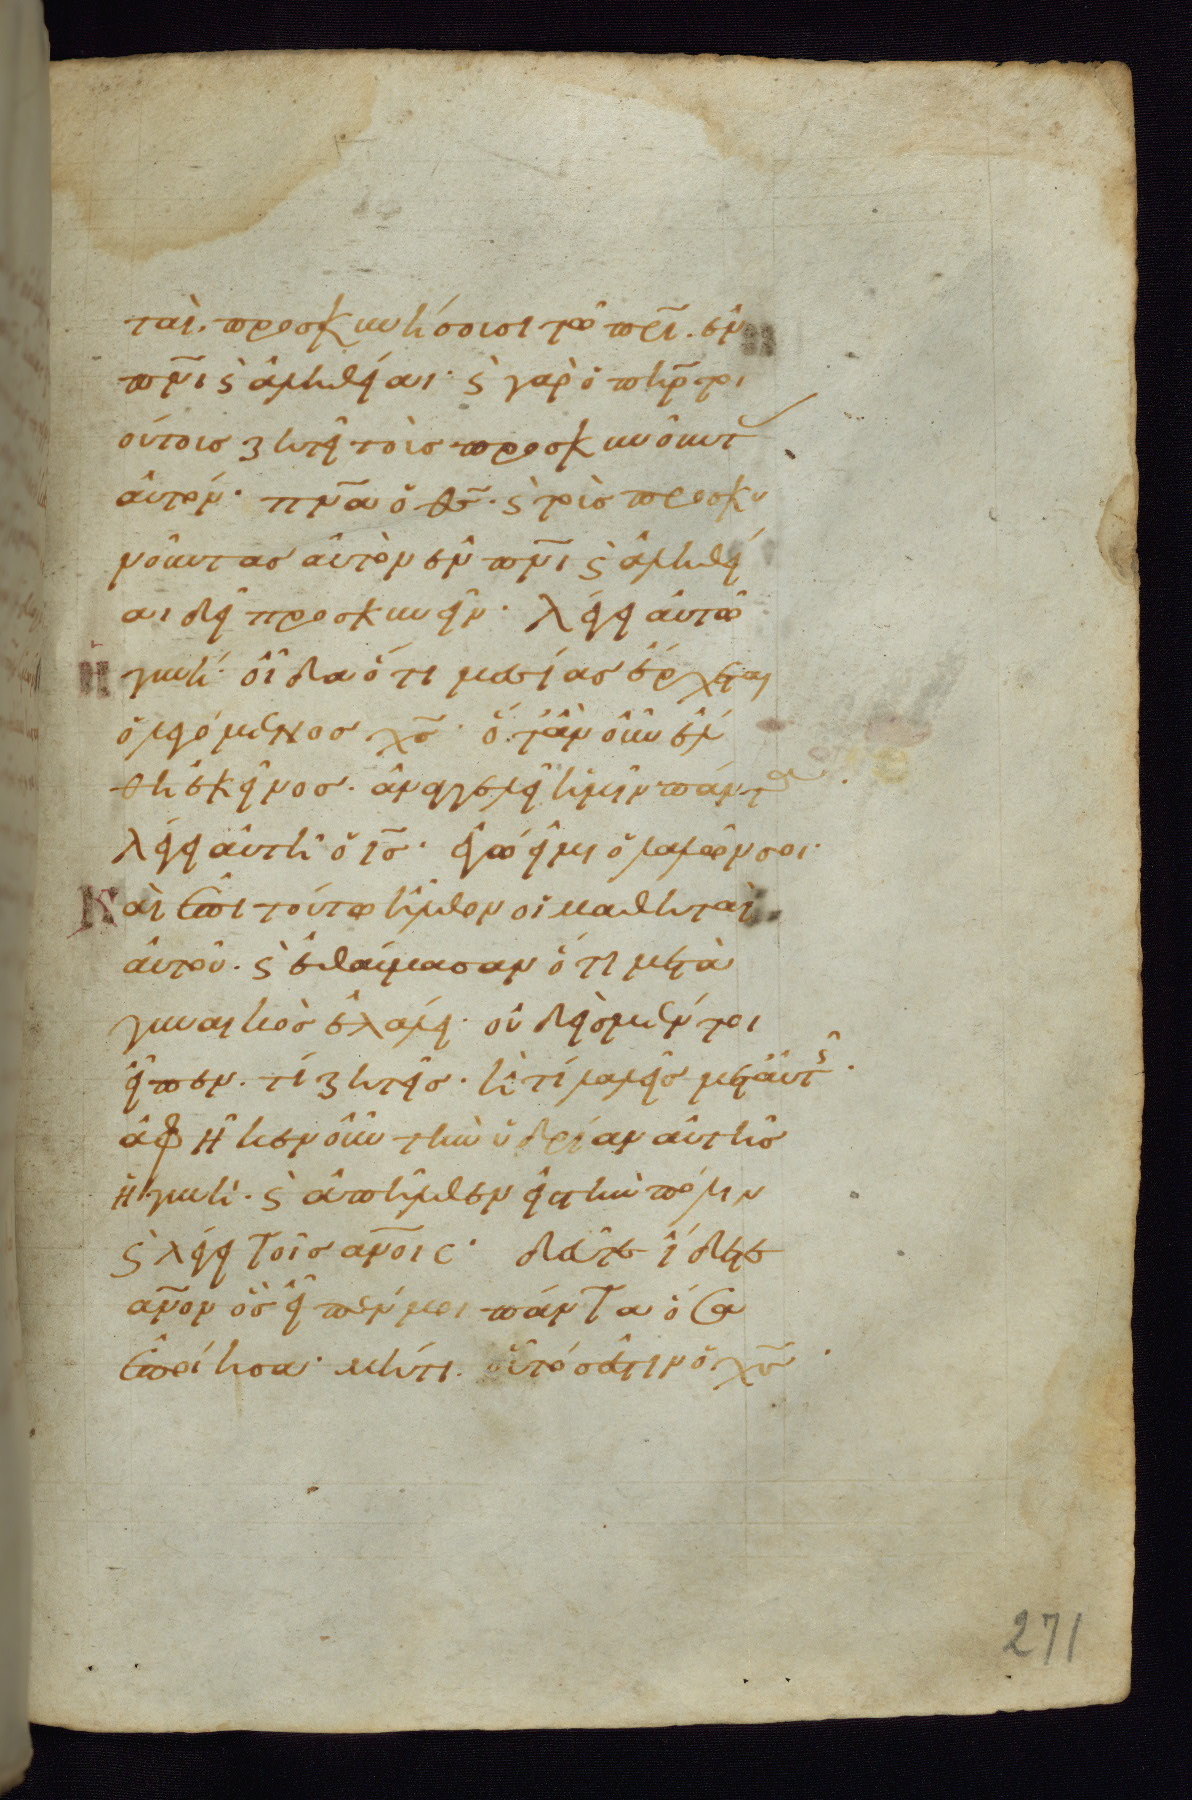 ταὶ. προσκυνήσουσι τῶ πρ̅ι. ἐν
πν̅ι ϛ̀ ἀληθείαι· ϛ̀ γὰρ ὁ πη̅ρ τοι
ούτουσ ζητεῖ τοὺσ προσκυνοῦντ
αὐτόν· πν̅α ὁ θ̅σ· ϛ̀ τοὺσ προσκυ
νοῦντασ αὐτὸν ἐν πν̅ι ϛ̀ ἀληθεί
αι δεῖ προσκυνεῖν· λέγει αὐτῶ
Η γυνή· οἶδα ὅτι μεσίασ ἔρχεται
ὁ λεγόμενοσ χ̅σ· ὅταν οὖν ἔλ
θη ἐκεῖνοσ. ἀναγγελεῖ ἡμῖν πάντα.
λέγει αὐτῆ ὁ ι̅σ· ἐγώ εἰμι ὁ λαλῶν σοι·
Καὶ ἐπι τούτω ἦλθον οἱ μαθηταὶ
αὐτοῦ. ϛ̀ ἐθαύμασαν ὅτι μετὰ
γυναικὸσ ἐλάλει· οὐδεὶσ μέντοι
εἶπεν. τί ζητεῖσ. ἢ τί λαλεῖσ μετ αὐτῆς.
ἀφῆκεν οὖν τὴν ὑδρίαν αὐτῆσ
ἡ γυνὴ. ϛ̀ ἀπῆλθεν εἰσ τὴν πόλιν
ϛ̀ λέγει τοῖσ αν̅οις· δεῦτε ἴδετε
αν̅ον ὃσ εἶπέν μοι πάντα ὅσα
ἐποίησα· μήτι οὗτόσ ἐστιν ὁ χ̅σ.
271